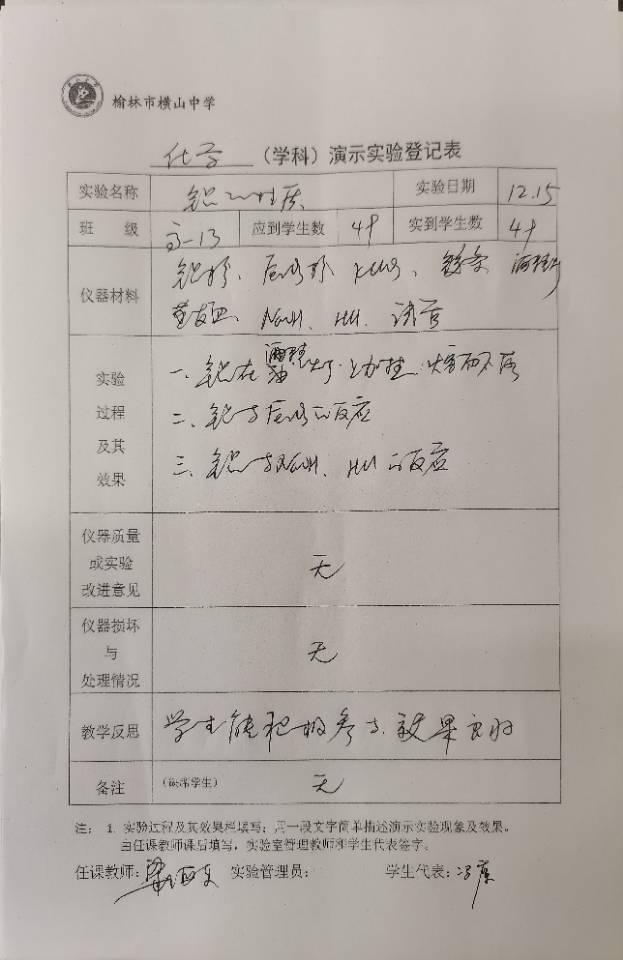 榆林市横山中学
化学 (学科) 演示实验登记表
实验名称 铝的性质 实验日期 12.15
班 级 高一13 应到学生数 49 实到学生数 49
仪器材料 铝粉、 KClO3、镁条 酒精灯
NaOH、HCl、试管
实验过程及其效果 一、铝在酒精灯上加热 熔而不落
二、铝与 的反应
三、铝与NaOH、HCl的反应
仪器质量或实验改进意见 无
仪器损坏与处理情况 无
教学反思 学生能积极参与、效果良好
备注 (缺席学生) 无
注: 1. 实验过程及其效果栏填写:用一段文字简单描述演示实验现象及效果。
由任课教师课后填写,实验室管理教师和学生代表签字。
任课教师: 实验管理员: 学生代表: